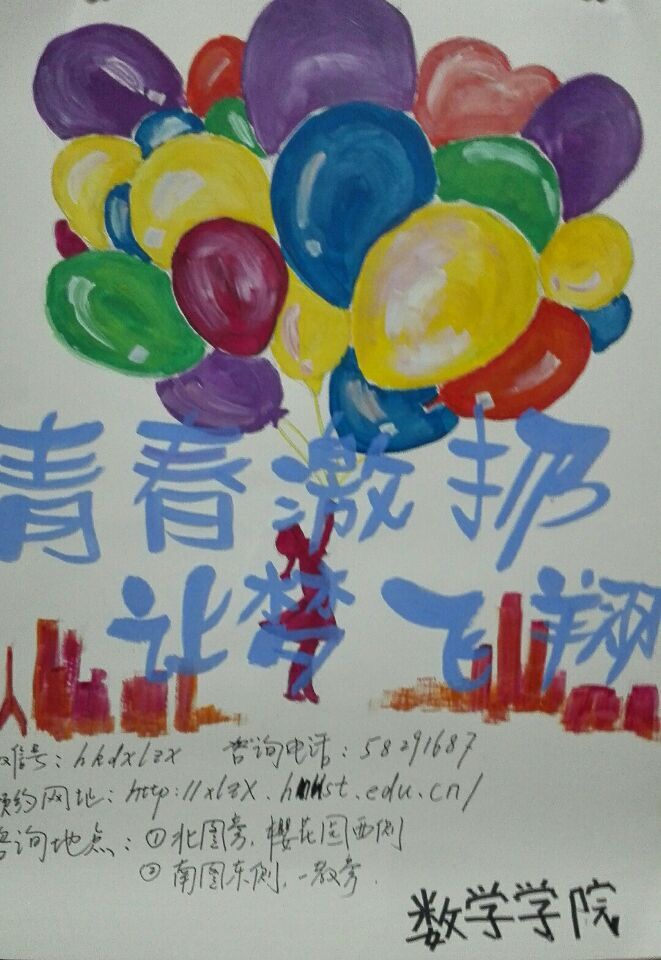 青春激扬
让梦飞翔
微信号：hkdxlzx 咨询电话：58291687
预约网址：http://xlzx.hnust.edu.cn/
咨询地点：①北图旁，樱花园西侧
②南图东侧，一教旁.
数学学院